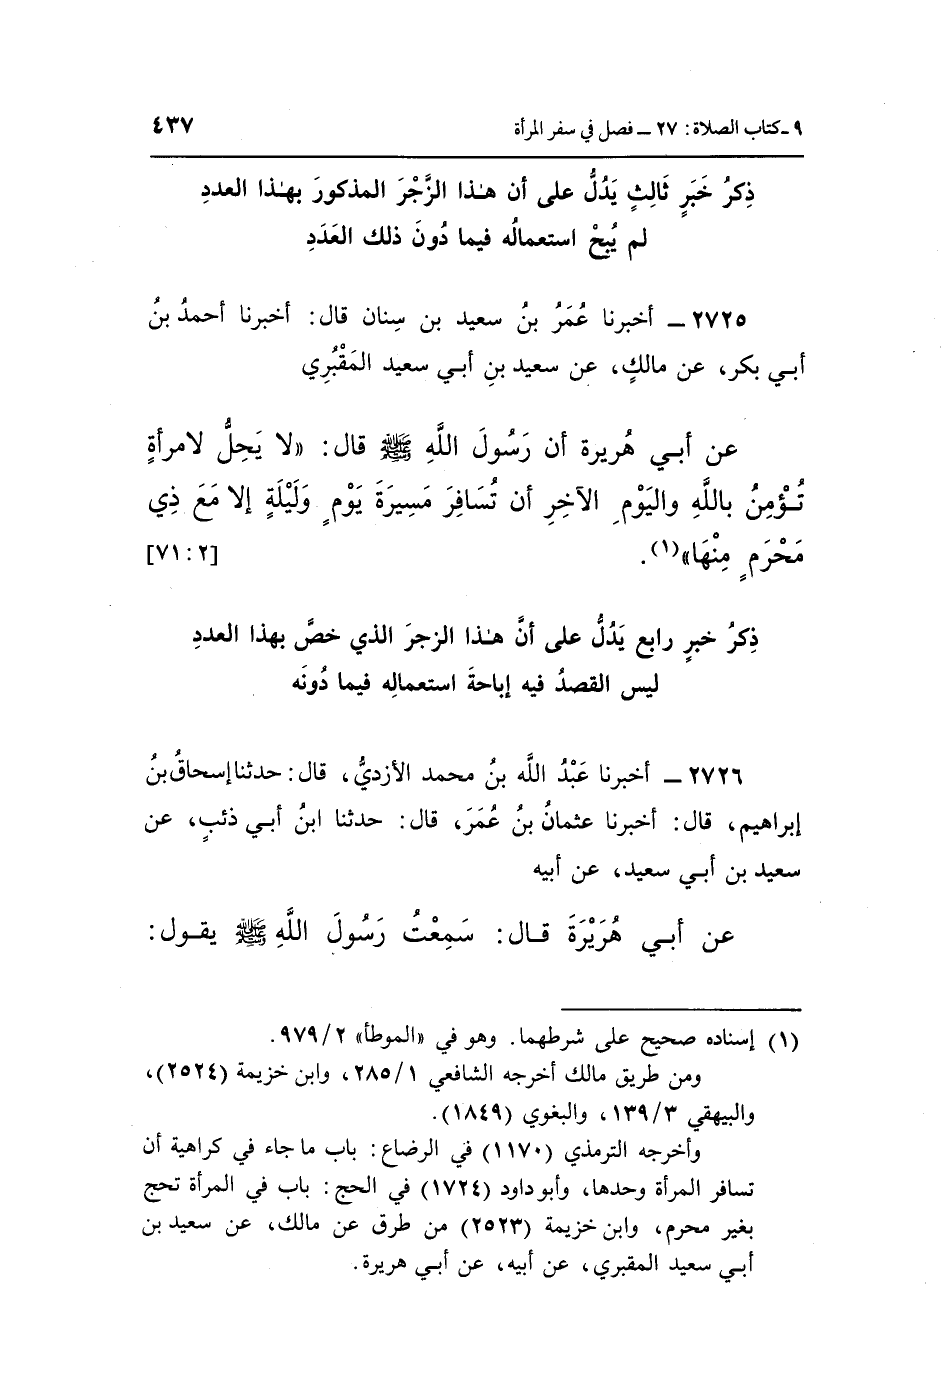 ٩ ـ كتاب الصلاة : ٢٧ ــ فصل في سفر المرأة ٤٣٧
ذِكرُ خَبَرٍ ثَالِثٍ يَدُلُّ على أن هـٰذا الزَّجْرَ المذكورَ بهـٰذا العددِ
لم يُبِحْ استعمالُه فيما دُونَ ذلك العَدَدِ
٢٧٢٥ ــ أخبرنا عُمَرُ بنُ سعيد بن سِنان قال : أخبرنا أحمدُ بنُ
أبـي بكر، عن مالكٍ، عن سعيد بنِ أبـي سعيد المَقْبُرِي
عن أبـي هُريرة أن رَسُولَ اللَّهِ ﷺ قال : «لا يَحِلُّ لامرأةٍ
تُـؤْمِنُ باللَّهِ واليَوْمِ الآخِرِ أن تُسَافِرَ مَسِيرَةَ يَوْمٍ وَلَيْلَةٍ إلا مَعَ ذِي
مَحْرَمٍ مِنْهَا»(١). [٢ : ٧١]
ذِكرُ خبرٍ رابع يَدُلُّ على أنَّ هـٰذا الزجرَ الذي خصَّ بهذا العددِ
ليس القصدُ فيه إباحةَ استعمالِه فيما دُونَه
٢٧٢٦ ــ أخبرنا عَبْدُ اللَّه بنُ محمد الأزديُّ، قال : حدثنا إسحاقُ بنُ
إبراهيم، قال : أخبرنا عثمانُ بنُ عُمَرَ، قال : حدثنا ابنُ أبـي ذئبٍ، عن
سعيد بن أبـي سعيد، عن أبيه
عن أبـي هُرَيْرَةَ قـال : سَمِعْتُ رَسُولَ اللَّهِ ﷺ يقـول :
(١) إسناده صحيح على شرطهما. وهو في «الموطأ» ٩٧٩/٢.
ومن طريق مالك أخرجه الشافعي ٢٨٥/١، وابن خزيمة (٢٥٢٤)،
والبيهقي ١٣٩/٣، والبغوي (١٨٤٩).
وأخرجه الترمذي (١١٧٠) في الرضاع : باب ما جاء في كراهية أن
تسافر المرأة وحدها، وأبو داود (١٧٢٤) في الحج : باب في المرأة تحج
بغير محرم، وابن خزيمة (٢٥٢٣) من طرق عن مالك، عن سعيد بن
أبـي سعيد المقبري، عن أبيه، عن أبـي هريرة.